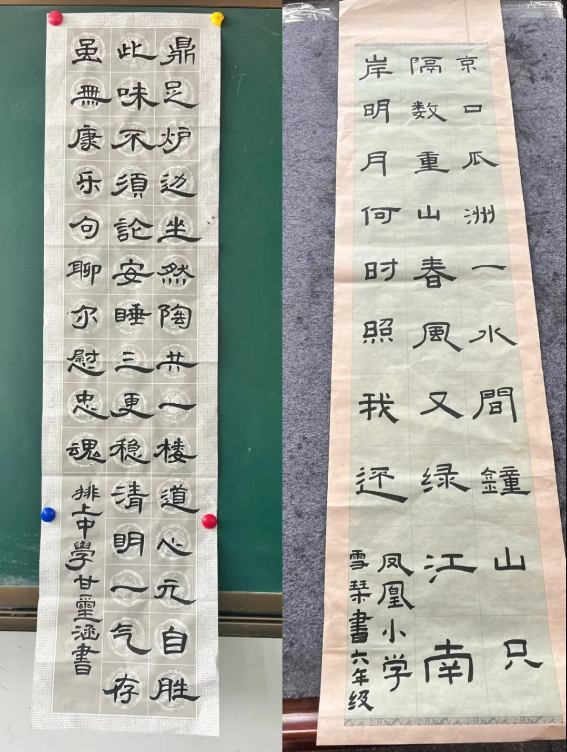 鼎足炉边坐然陶共一楼道心元自胜
此味不須論安睡三更稳清明一气存
虽無康乐句聊尔慰忠魂
排上中學甘璽涵書
京口瓜洲一水間鐘山只
隔数重山春風又绿江南
岸明月何时照我还
凤凰小学
雪琹書六年级